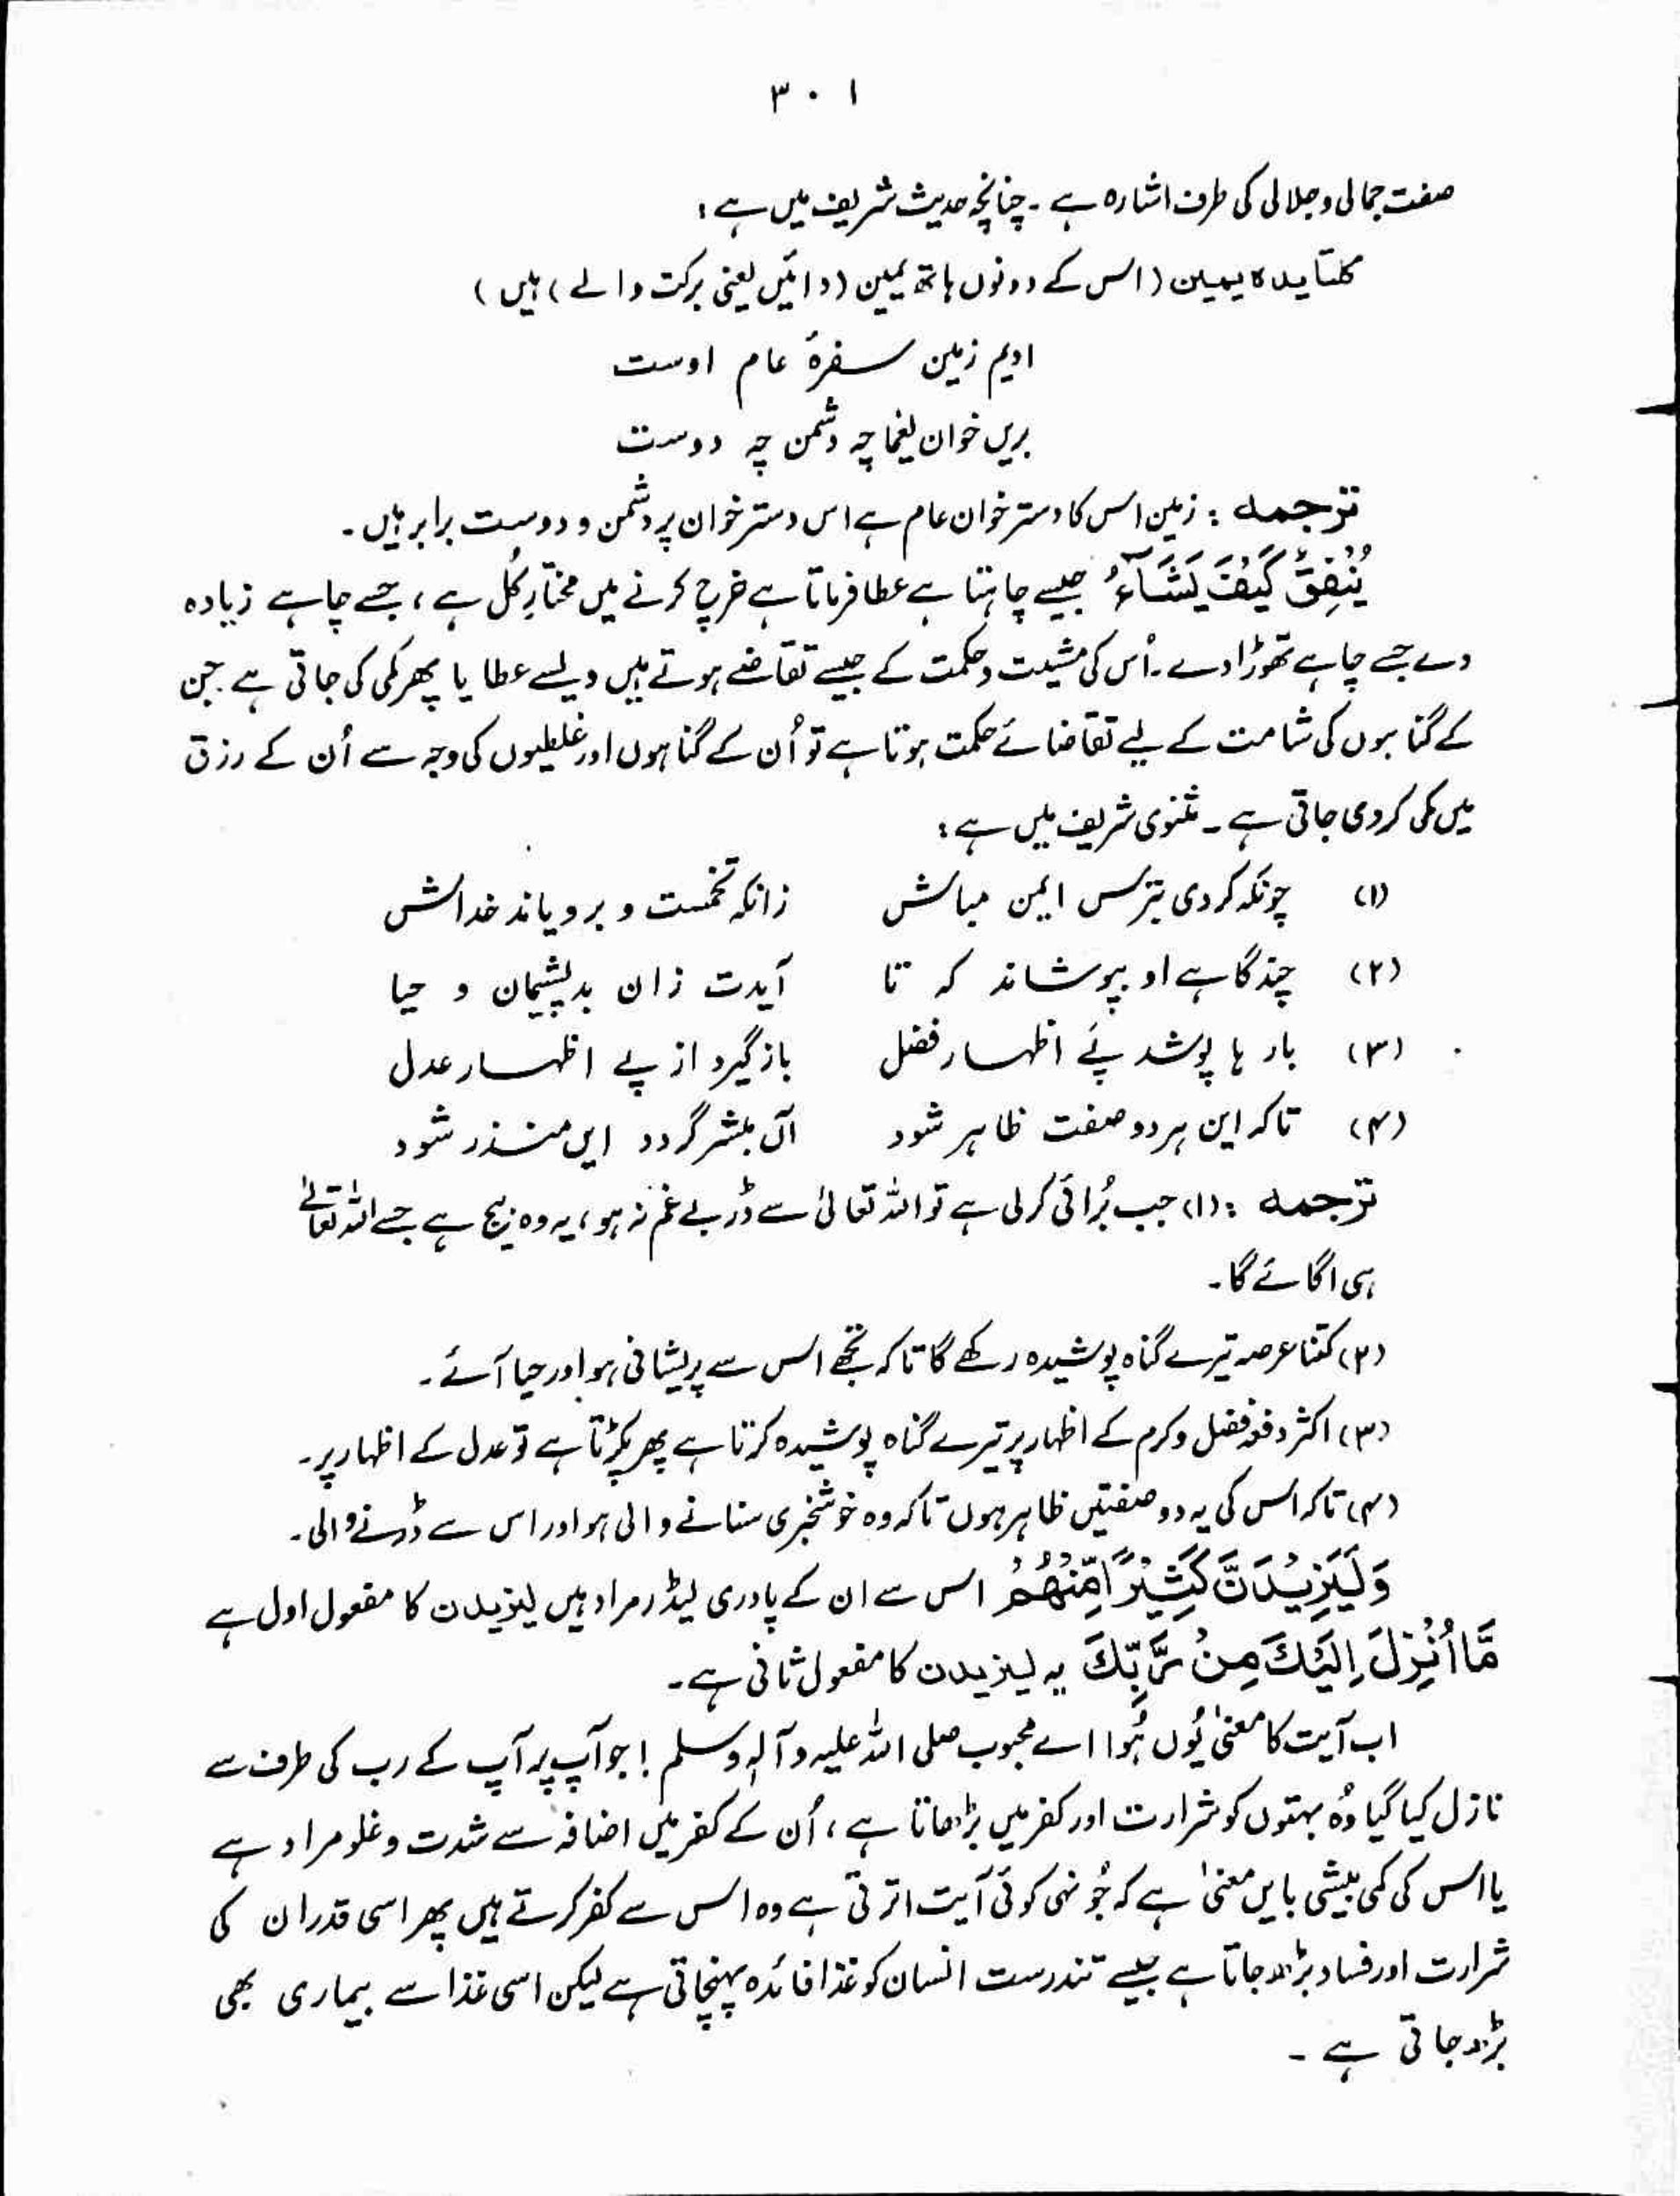 ۳۰۱
صفت جمالی و جلالی کی طرف اشارہ ہے ۔ چنانچہ حدیث شریف میں ہے :
کلتا یدہ یمین ( اس کے دونوں ہاتھ یمین ( دائیں یعنی برکت والے ) ہیں )
ادیم زمین سفرۂ عام اوست
بریں خوان یغما چہ دشمن چہ دوست
ترجمہ : زمین اس کا دسترخوان عام ہے اس دسترخوان پر دشمن و دوست برابر ہیں ۔
یُنْفِقُ کَیْفَ یَشَآءُ جیسے چاہتا ہے عطا فرماتا ہے خرچ کرنے میں مختارِ کُل ہے ، جسے چاہے زیادہ
دے جسے چاہے تھوڑا دے ۔ اُس کی مشیت و حکمت کے جیسے تقاضے ہوتے ہیں ویسے عطا یا پھر کمی کی جاتی ہے ۔ جن
کے گناہوں کی شامت کے لیے تقاضائے حکمت ہوتا ہے تو اُن کے گناہوں اور غلطیوں کی وجہ سے اُن کے رزق
میں کمی کر دی جاتی ہے ۔ مثنوی شریف میں ہے :
(۱) چونکہ کردی بترس ایمن مباش زانکہ تخمست و برویاند خداش
(۲) چند گاہے او بپوشاند کہ تا آیدت زان بد پشیمان و حیا
(۳) بار ہا پوشد پئے اظہار فضل باز گیرد از پے اظہار عدل
(۴) تاکہ این ہر دو صفت ظاہر شود آں مبشر گردد ایں منذر شود
ترجمہ : (۱) جب بُرائی کرلی ہے تو اللہ تعالیٰ سے ڈر بے غم نہ ہو ، یہ وہ بیج ہے جسے اللہ تعالےٰ
ہی اگائے گا ۔
(۲) کتنا عرصہ تیرے گناہ پوشیدہ رکھے گا تاکہ تجھے اس سے پریشانی ہو اور حیا آئے ۔
(۳) اکثر دفعہ فضل و کرم کے اظہار پر تیرے گناہ پوشیدہ کرتا ہے پھر پکڑتا ہے تو عدل کے اظہار پر ۔
(۴) تاکہ اس کی یہ دو صفتیں ظاہر ہوں تاکہ وہ خوشخبری سنانے والی ہو اور اس سے ڈرنے والی ۔
وَلَیَزِیْدَنَّ کَثِیْرًا مِّنْهُمْ اس سے ان کے پادری لیڈر مراد ہیں لیزیدن کا مفعول اول ہے
مَّا اُنْزِلَ اِلَیْکَ مِنْ رَّبِّکَ یہ لیزیدن کا مفعول ثانی ہے ۔
اب آیت کا معنیٰ یُوں ہُوا اے محبوب صلی اللہ علیہ وآلہٖ وسلم ! جو آپ پر آپ کے رب کی طرف سے
نازل کیا گیا وُہ بہتوں کو شرارت اور کفر میں بڑھاتا ہے ، اُن کے کفر میں اضافہ سے شدت و غلو مراد ہے
یا اس کی کمی بیشی بایں معنیٰ ہے کہ جُونہی کوئی آیت اترتی ہے وہ اس سے کفر کرتے ہیں پھر اسی قدر ان کی
شرارت اور فساد بڑھ جاتا ہے جیسے تندرست انسان کو غذا فائدہ پہنچاتی ہے لیکن اسی غذا سے بیماری بھی
بڑھ جاتی ہے ۔